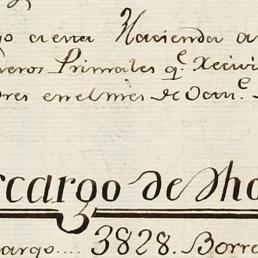 o cuenta Hacienda a
eros Primales q.e Xecivi
res en el mes de Octu.e
rcargo de dho
argo.... 3828. Borre